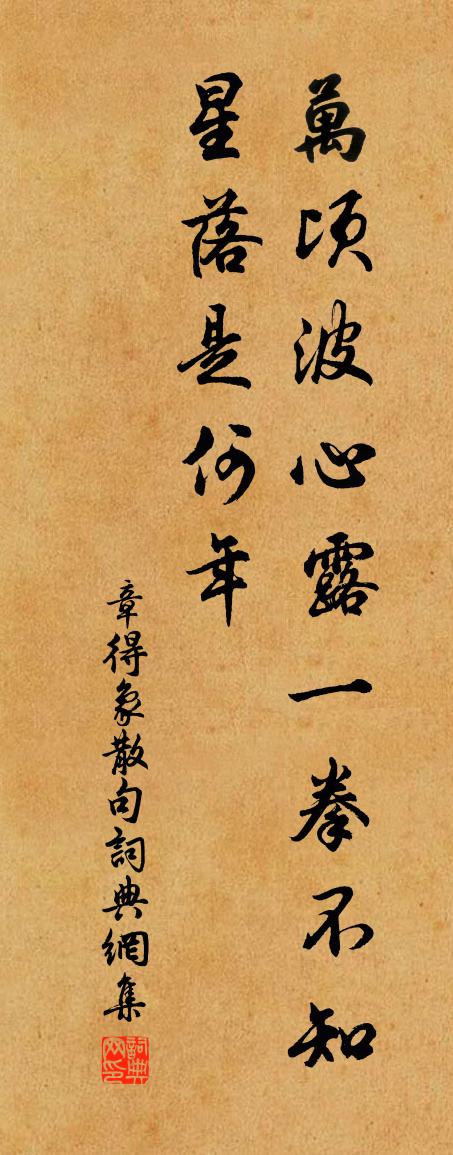 萬頃波心露一拳不知
星落是何年
章得象散句詞典網集
詞典网印